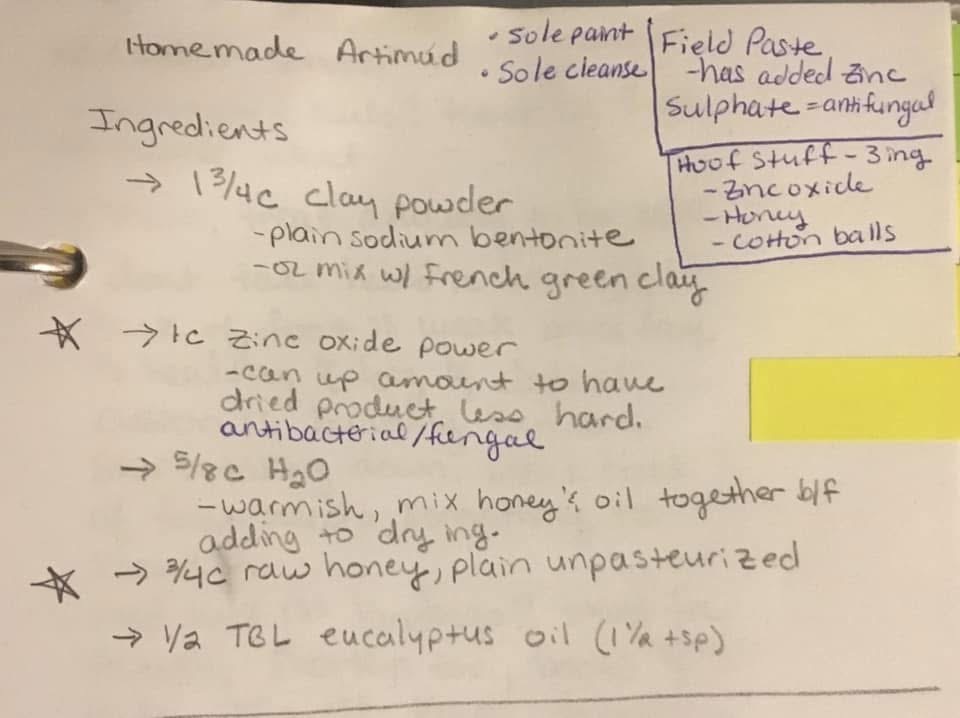 Homemade Artimud
• Sole paint
• Sole cleanse
Field Paste
-has added zinc
Sulphate = antifungal
Hoof Stuff - 3 ing
- Zinc oxide
- Honey
- cotton balls
Ingredients
→ 1 3/4c clay powder
-plain sodium bentonite
-or mix w/ French green clay
☆ → 1c zinc oxide power
-can up amount to have
dried product less hard.
antibacterial/fungal
→ 5/8c H₂O
-warmish, mix honey & oil together b/f
adding to dry ing.
☆ → 3/4c raw honey, plain unpasteurized
→ 1/2 TBL eucalyptus oil (1 1/2 tsp)